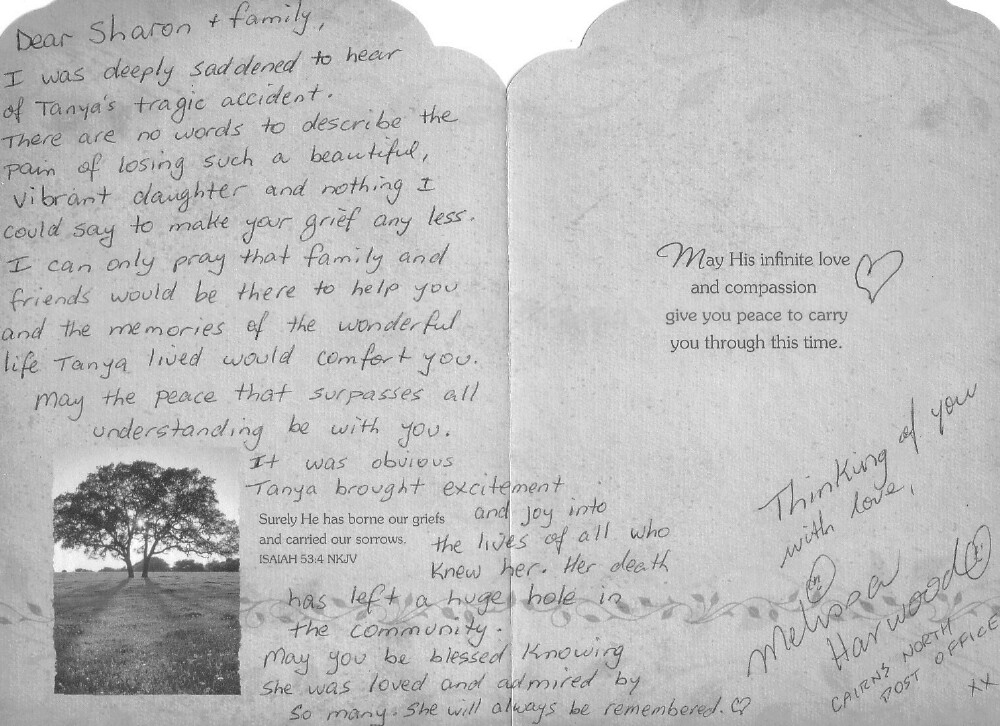 Dear Sharon + family,
I was deeply saddened to hear
of Tanya's tragic accident.
There are no words to describe the
pain of losing such a beautiful,
vibrant daughter and nothing I
could say to make your grief any less.
I can only pray that family and
friends would be there to help you
and the memories of the wonderful
life Tanya lived would comfort you.
May the peace that surpasses all
understanding be with you.
It was obvious
Tanya brought excitement
and joy into
the lives of all who
knew her. Her death
has left a huge hole in
the community.
May you be blessed knowing
she was loved and admired by
so many. She will always be remembered.
Surely He has borne our griefs
and carried our sorrows.
ISAIAH 53:4 NKJV
May His infinite love
and compassion
give you peace to carry
you through this time.
Thinking of you
with love,
Melissa
Harwood
CAIRNS NORTH
POST OFFICE
XX